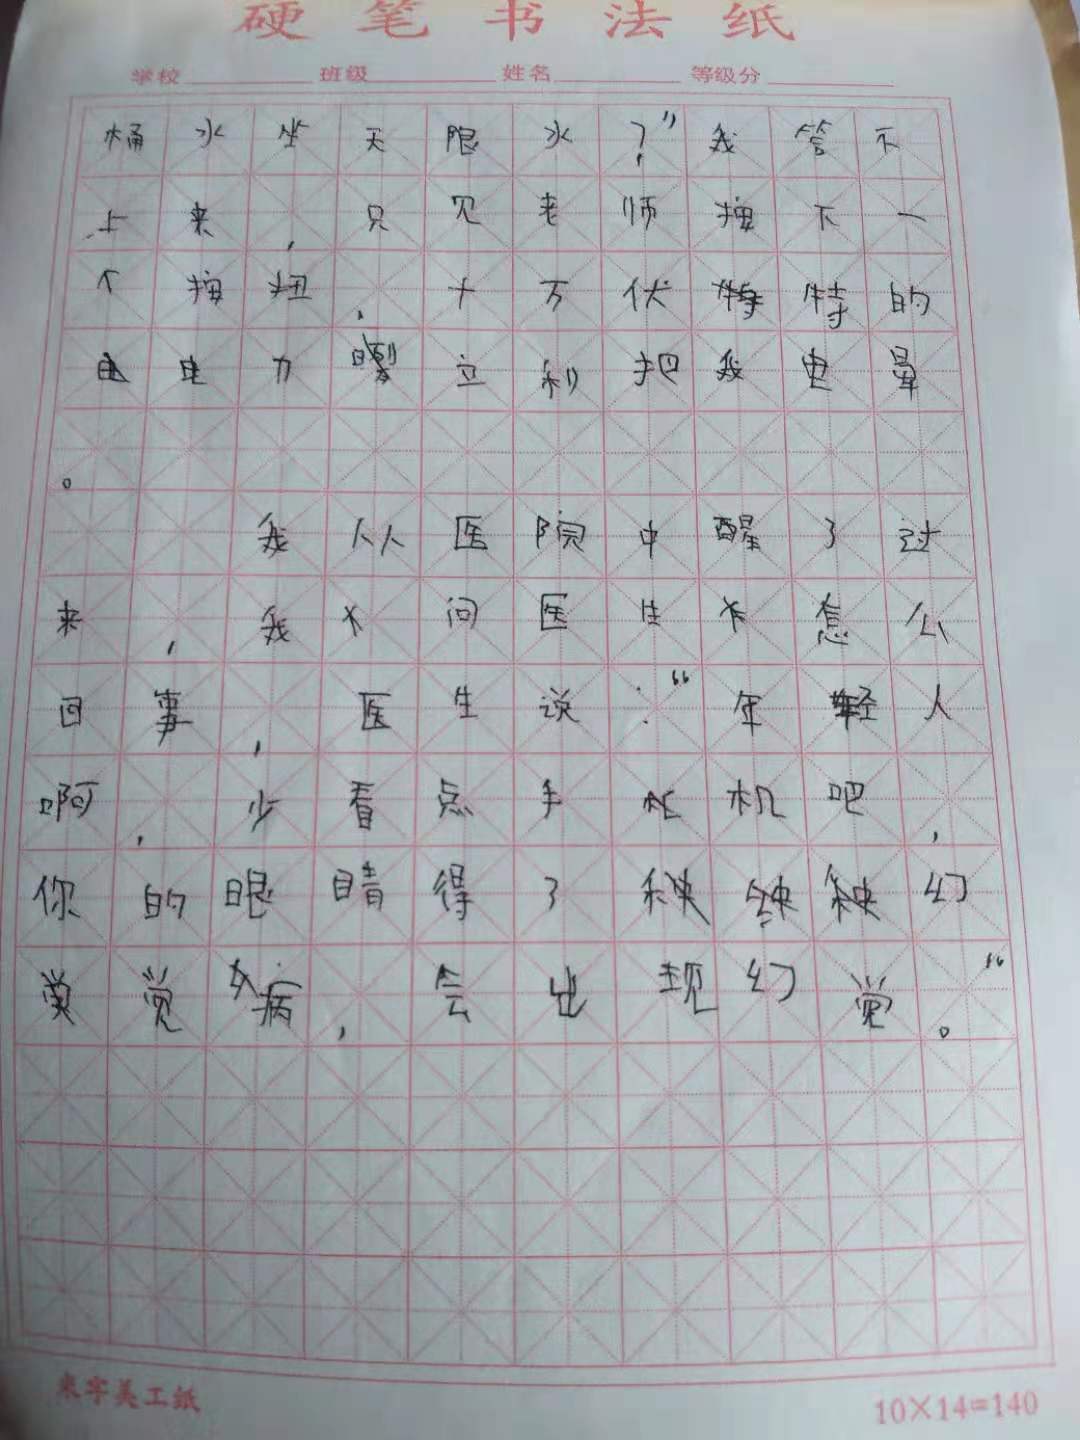 硬笔书法纸
学校 班级 姓名 等级分
桶水坐天限水？”我答不
上来，只见老师按下一
个按钮，十万伏特特的
电电力立刻把我电晕
。
我从医院中醒了过
来，我问医生怎么
回事，医生说：“年轻人
啊，少看点手机吧，
你的眼睛得了秧幻
觉病，会出现幻觉。“
米字美工纸
10×14=140